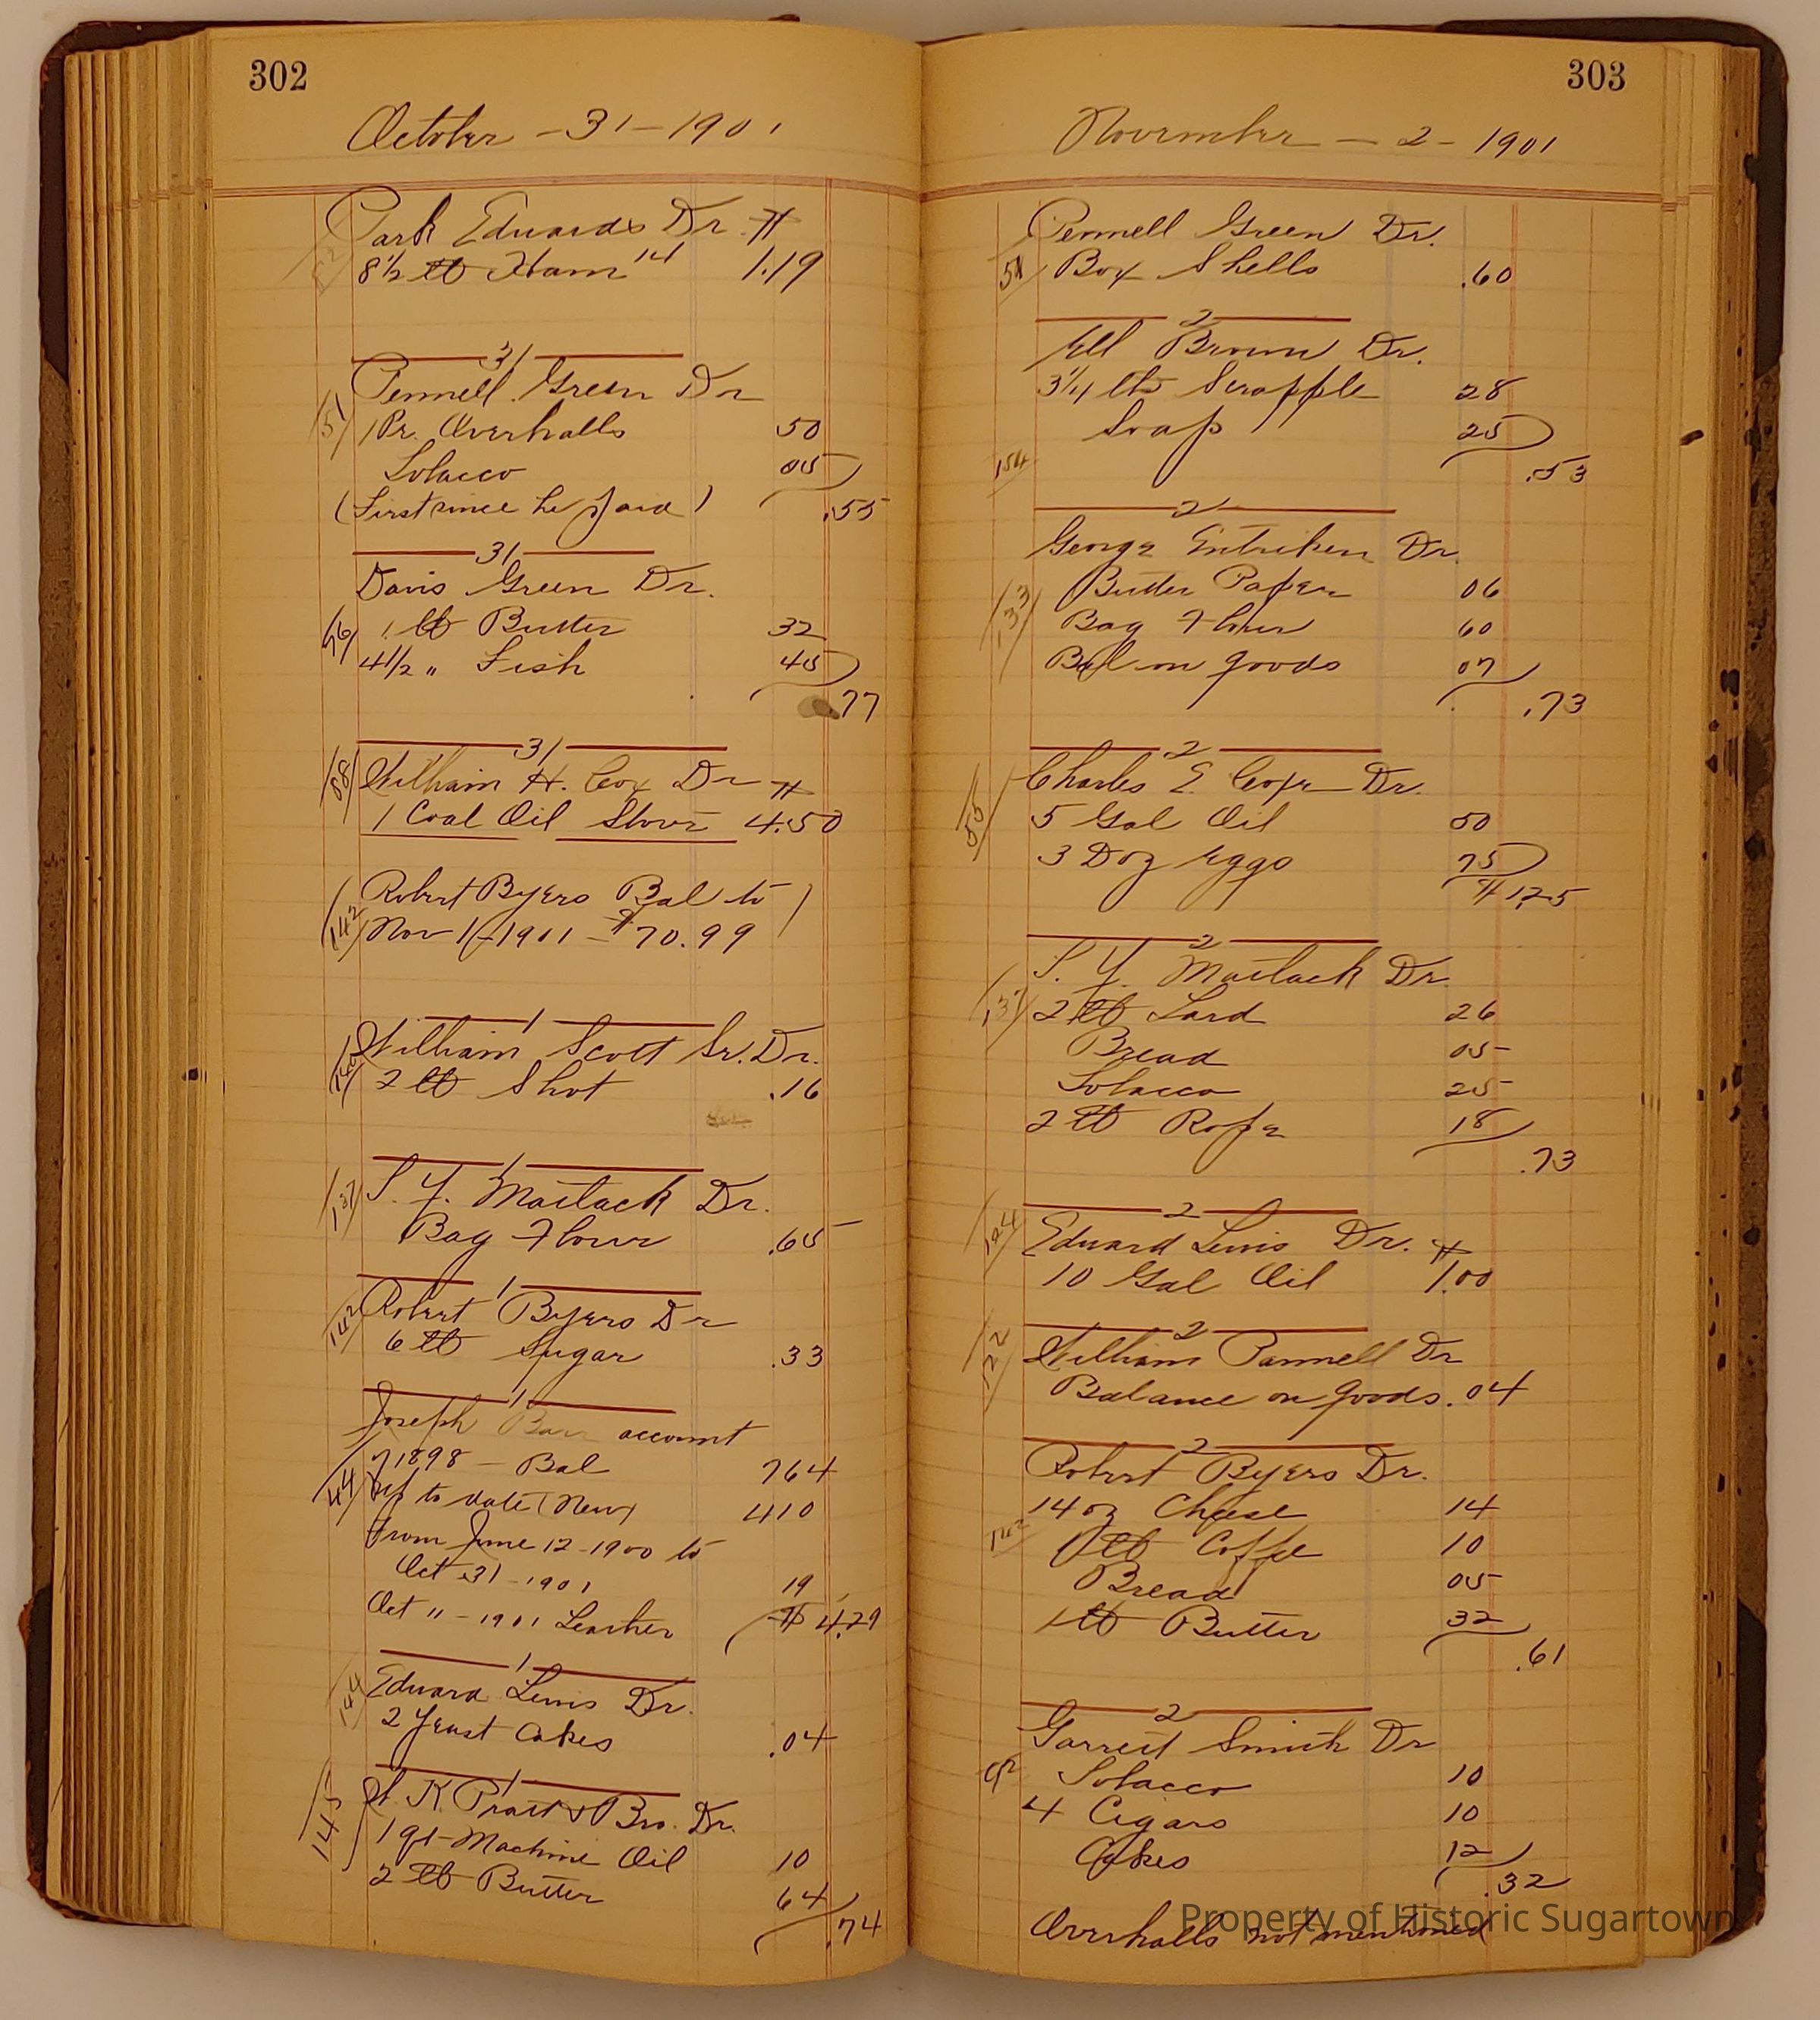 302
October - 31 - 1901
Park Edwards Dr. $
8 1/2 lb Ham 14 1.19
31
Pennell Green Dr
51 1 Pr. Overhalls 50
Tobacco 05
(First since he paid) .55
31
Davis Green Dr.
1 lb Butter 32
4 1/2 " Fish 45
.77
31
88 William H. Cox Dr $
1 Coal Oil Stove 4.50
(Robert Byers Bal to)
142 Nov 1 - 1901 - $70.99
1
William Scott Sr. Dr.
2 lb Shot .16
1
137 S. Y. Matlack Dr.
Bag Flour .65
1
142 Robert Byers Dr
6 lb Sugar .33
1
Joseph Barr account
1898 - Bal 764
44 up to date (New) 410
From June 12 - 1900 to
Oct 31 - 1901 19
Oct " - 1901 Leather $ 4.29
1
144 Edward Lewis Dr.
2 Yeast Cakes .04
1
145 K Pratt & Bro. Dr.
1 qt Machine Oil 10
2 lb Butter 64
.74
303
November - 2 - 1901
Pennell Green Dr.
51 Box Shells .60
2
Ell Brown Dr.
3 1/4 lbs Scrapple 28
Soap 25
154 .53
2
George Entriken Dr.
133 Butter Paper 06
Bag Flour 60
Bal on goods 07
.73
2
Charles E. Cope Dr.
55 5 Gal Oil 50
3 Doz Eggs 75
$1.25
2
S. Y. Matlack Dr.
137 2 lb Lard 26
Bread 05
Tobacco 25
2 lb Rope 18
.73
2
124 Edward Lewis Dr. $
10 Gal Oil 1.00
2
122 William Pannell Dr
Balance on goods .04
2
Robert Byers Dr.
14 oz Cheese 14
142 1 lb Coffe 10
Bread 05
1 lb Butter 32
.61
2
Garrett Smith Dr
Tobacco 10
4 Cigars 10
Cakes 12
.32
Overhalls not mentioned
Property of Historic Sugartown